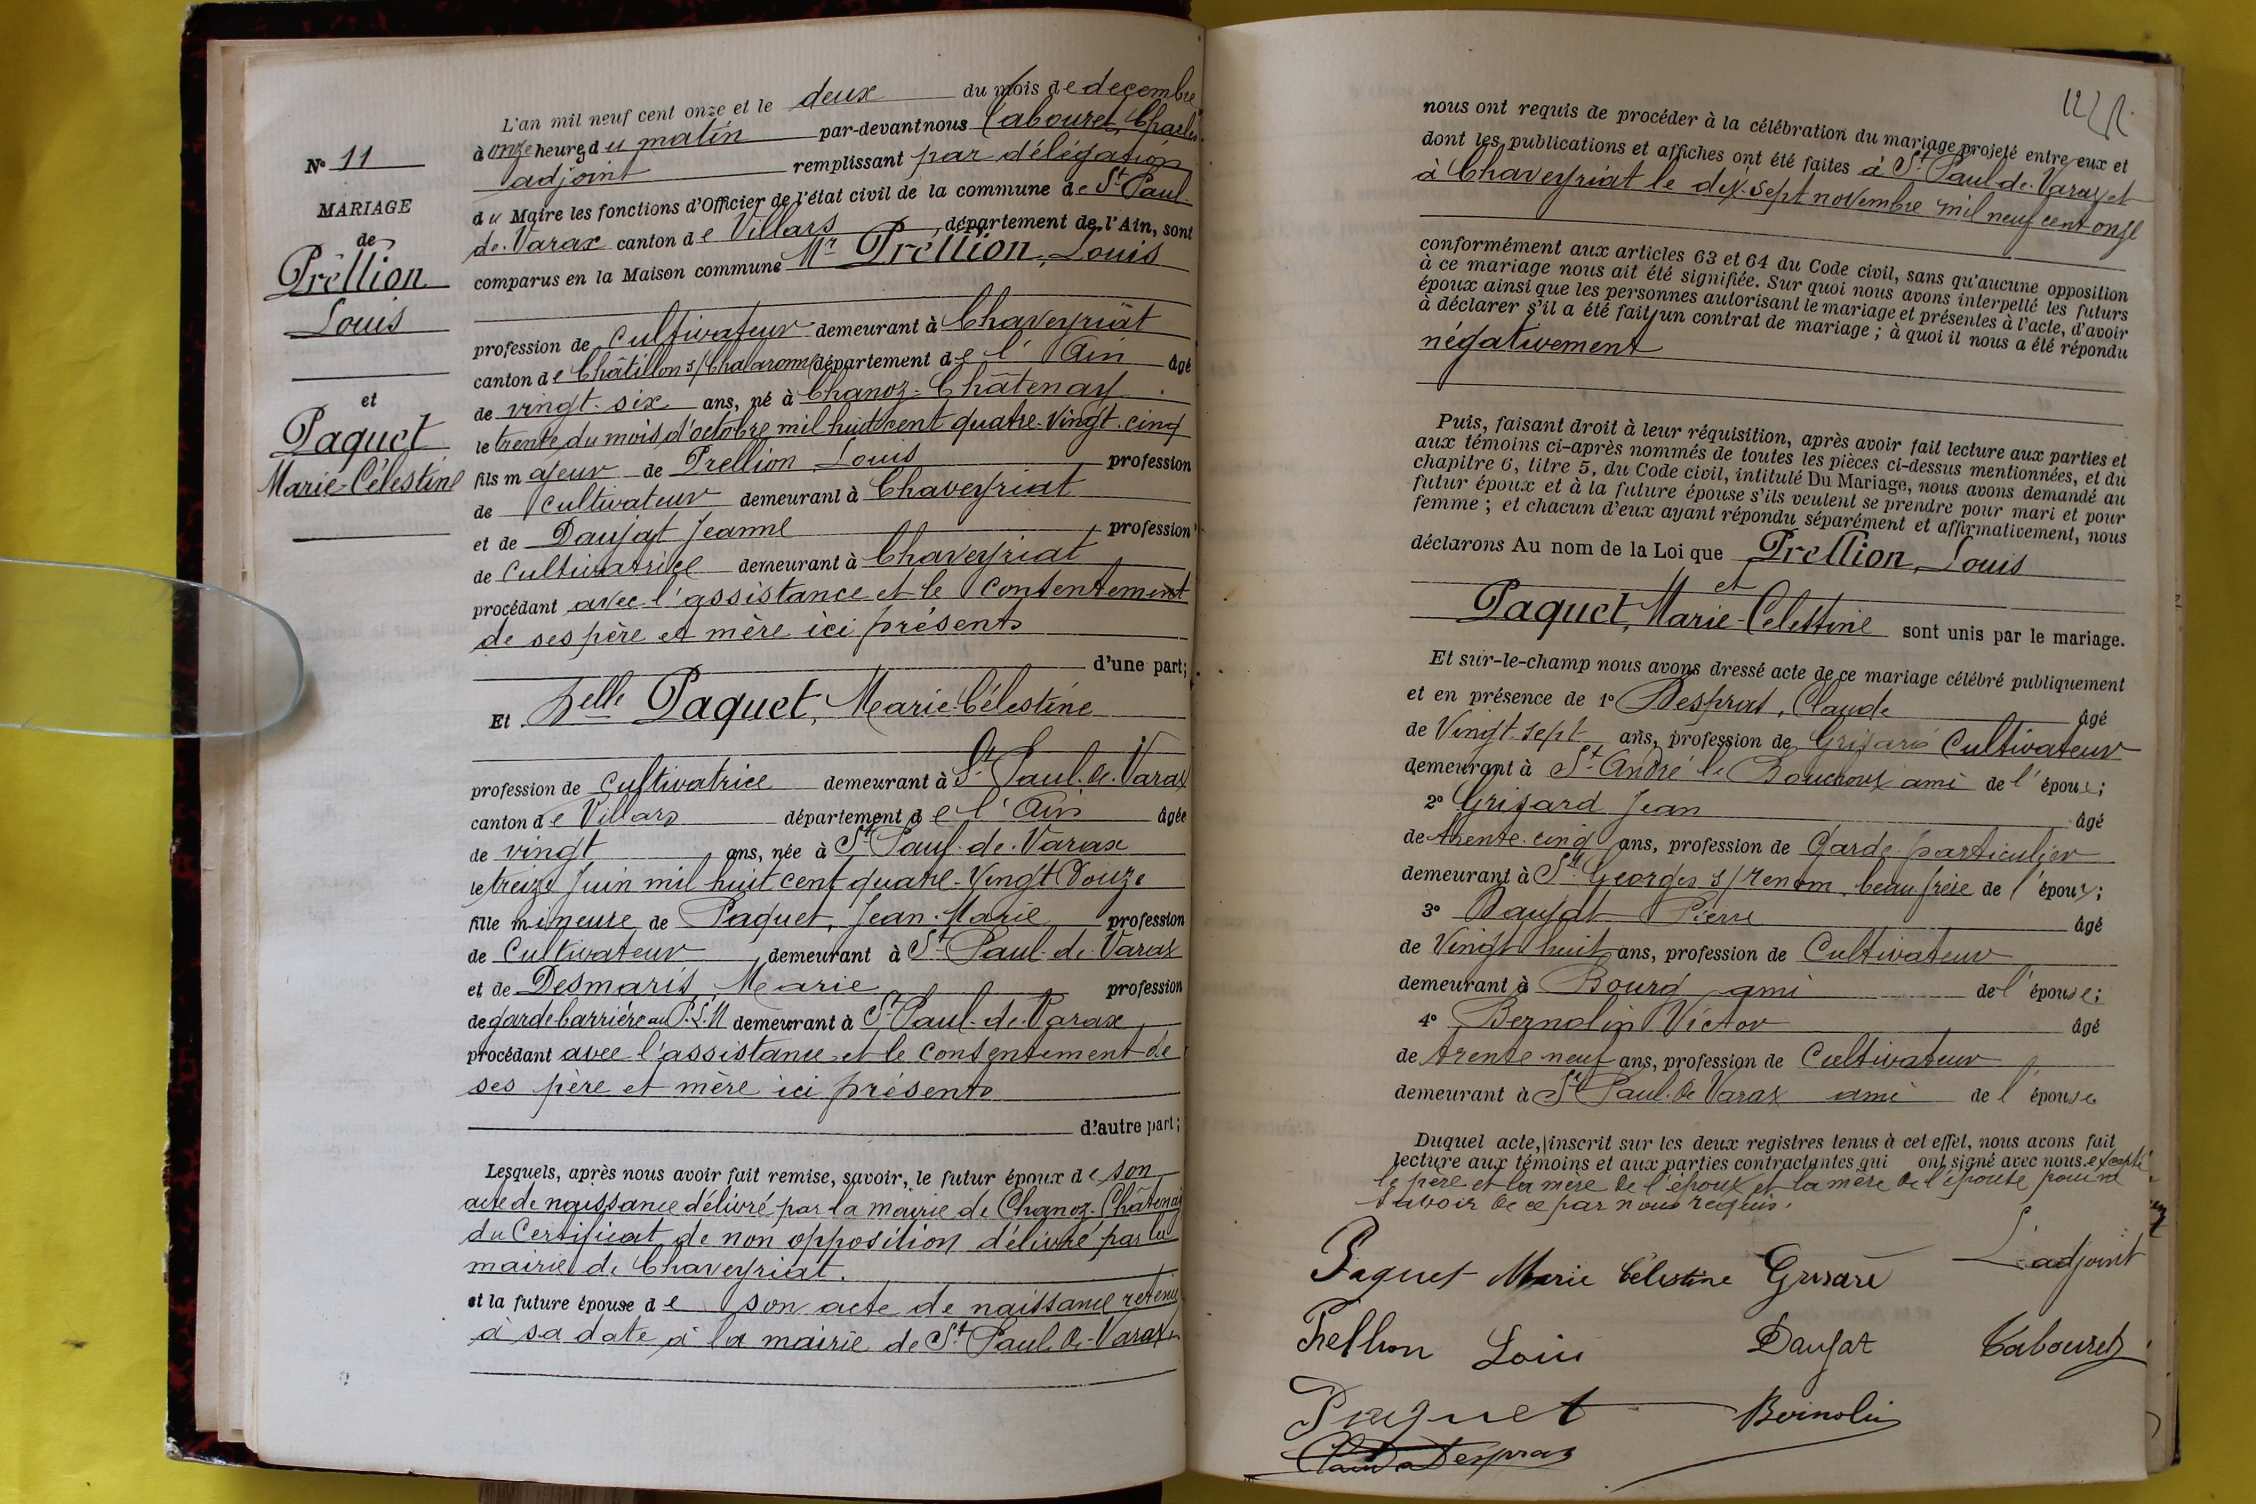 L'an mil neuf cent onze et le deux du mois de decembre
à onze heures du matin par-devant nous Cabouret, Charles
adjoint remplissant par délégation
du Maire les fonctions d'Officier de l'état civil de la commune de St Paul-
de-Varax canton de Villars, département de l'Ain, sont
comparus en la Maison commune Mr Prêllion, Louis
profession de cultivateur demeurant à Chaveyriat
canton de Châtillon s/Chalaronne département de l'Ain âgé
de vingt-six ans, né à Chanoz-Châtenay
le trente du mois d'octobre mil huit cent quatre-vingt-cinq
fils majeur de Prellion Louis profession
de cultivateur demeurant à Chaveyriat
et de Daujat Jeanne profession
de cultivatrice demeurant à Chaveyriat
procédant avec l'assistance et le consentement
de ses père et mère ici présents
d'une part;
Et Delle Paquet, Marie-Célestine
profession de cultivatrice demeurant à St Paul-de-Varax
canton de Villars département de l'Ain âgée
de vingt ans, née à St Paul-de-Varax
le treize Juin mil huit cent quatre-Vingt Douze
fille mineure de Paquet, Jean-Marie profession
de Cultivateur demeurant à St Paul-de-Varax
et de Desmaris Marie profession
de garde barrière au P.L.M demeurant à St Paul-de-Varax
procédant avec l'assistance et le consentement de
ses père et mère ici présents
d'autre part;
Lesquels, après nous avoir fait remise, savoir, le futur époux de son
acte de naissance délivré par la mairie de Chanoz-Châtenay
du Certificat de non opposition délivré par la
mairie de Chaveyriat.
et la future épouse de son acte de naissance retenu
à sa date à la mairie de St Paul-de-Varax
N° 11
MARIAGE
de
Prêllion
Louis
et
Paquet
Marie-Célestine
nous ont requis de procéder à la célébration du mariage projeté entre eux et
dont les publications et affiches ont été faites à St Paul-de-Varax et
à Chaveyriat le dix-sept novembre mil neuf cent onze
conformément aux articles 63 et 64 du Code civil, sans qu'aucune opposition
à ce mariage nous ait été signifiée. Sur quoi nous avons interpellé les futurs
époux ainsi que les personnes autorisant le mariage et présentes à l'acte, d'avoir
à déclarer s'il a été fait un contrat de mariage; à quoi il nous a été répondu
négativement
Puis, faisant droit à leur réquisition, après avoir fait lecture aux parties et
aux témoins ci-après nommés de toutes les pièces ci-dessus mentionnées, et du
chapitre 6, titre 5, du Code civil, intitulé Du Mariage, nous avons demandé au
futur époux et à la future épouse s'ils veulent se prendre pour mari et pour
femme; et chacun d'eux ayant répondu séparément et affirmativement, nous
déclarons Au nom de la Loi que Prellion, Louis
et
Paquet, Marie-Célestine sont unis par le mariage.
Et sur-le-champ nous avons dressé acte de ce mariage célébré publiquement
et en présence de 1° Desprat, Claude âgé
de Vingt-sept ans, profession de Cultivateur
demeurant à St André le Bouchoux ami de l'époux;
2° Grisard Jean âgé
de trente-cinq ans, profession de Garde-particulier
demeurant à St Georges s/renom beau frère de l'époux;
3° Daujat Pierre âgé
de Vingt huit ans, profession de Cultivateur
demeurant à Bourg ami de l'épouse;
4° Bernolin Victor âgé
de trente neuf ans, profession de Cultivateur
demeurant à St Paul-de-Varax ami de l'épouse
Duquel acte, inscrit sur les deux registres tenus à cet effet, nous avons fait
lecture aux témoins et aux parties contractantes qui ont signé avec nous excepté
le père et la mère de l'époux et la mère de l'épouse pour ne
savoir de ce par nous requis.
Paquet Marie Célestine Grisard L'adjoint
Prellion Louis Daujat Cabouret
Paquet Bernolin
Claude Desprat